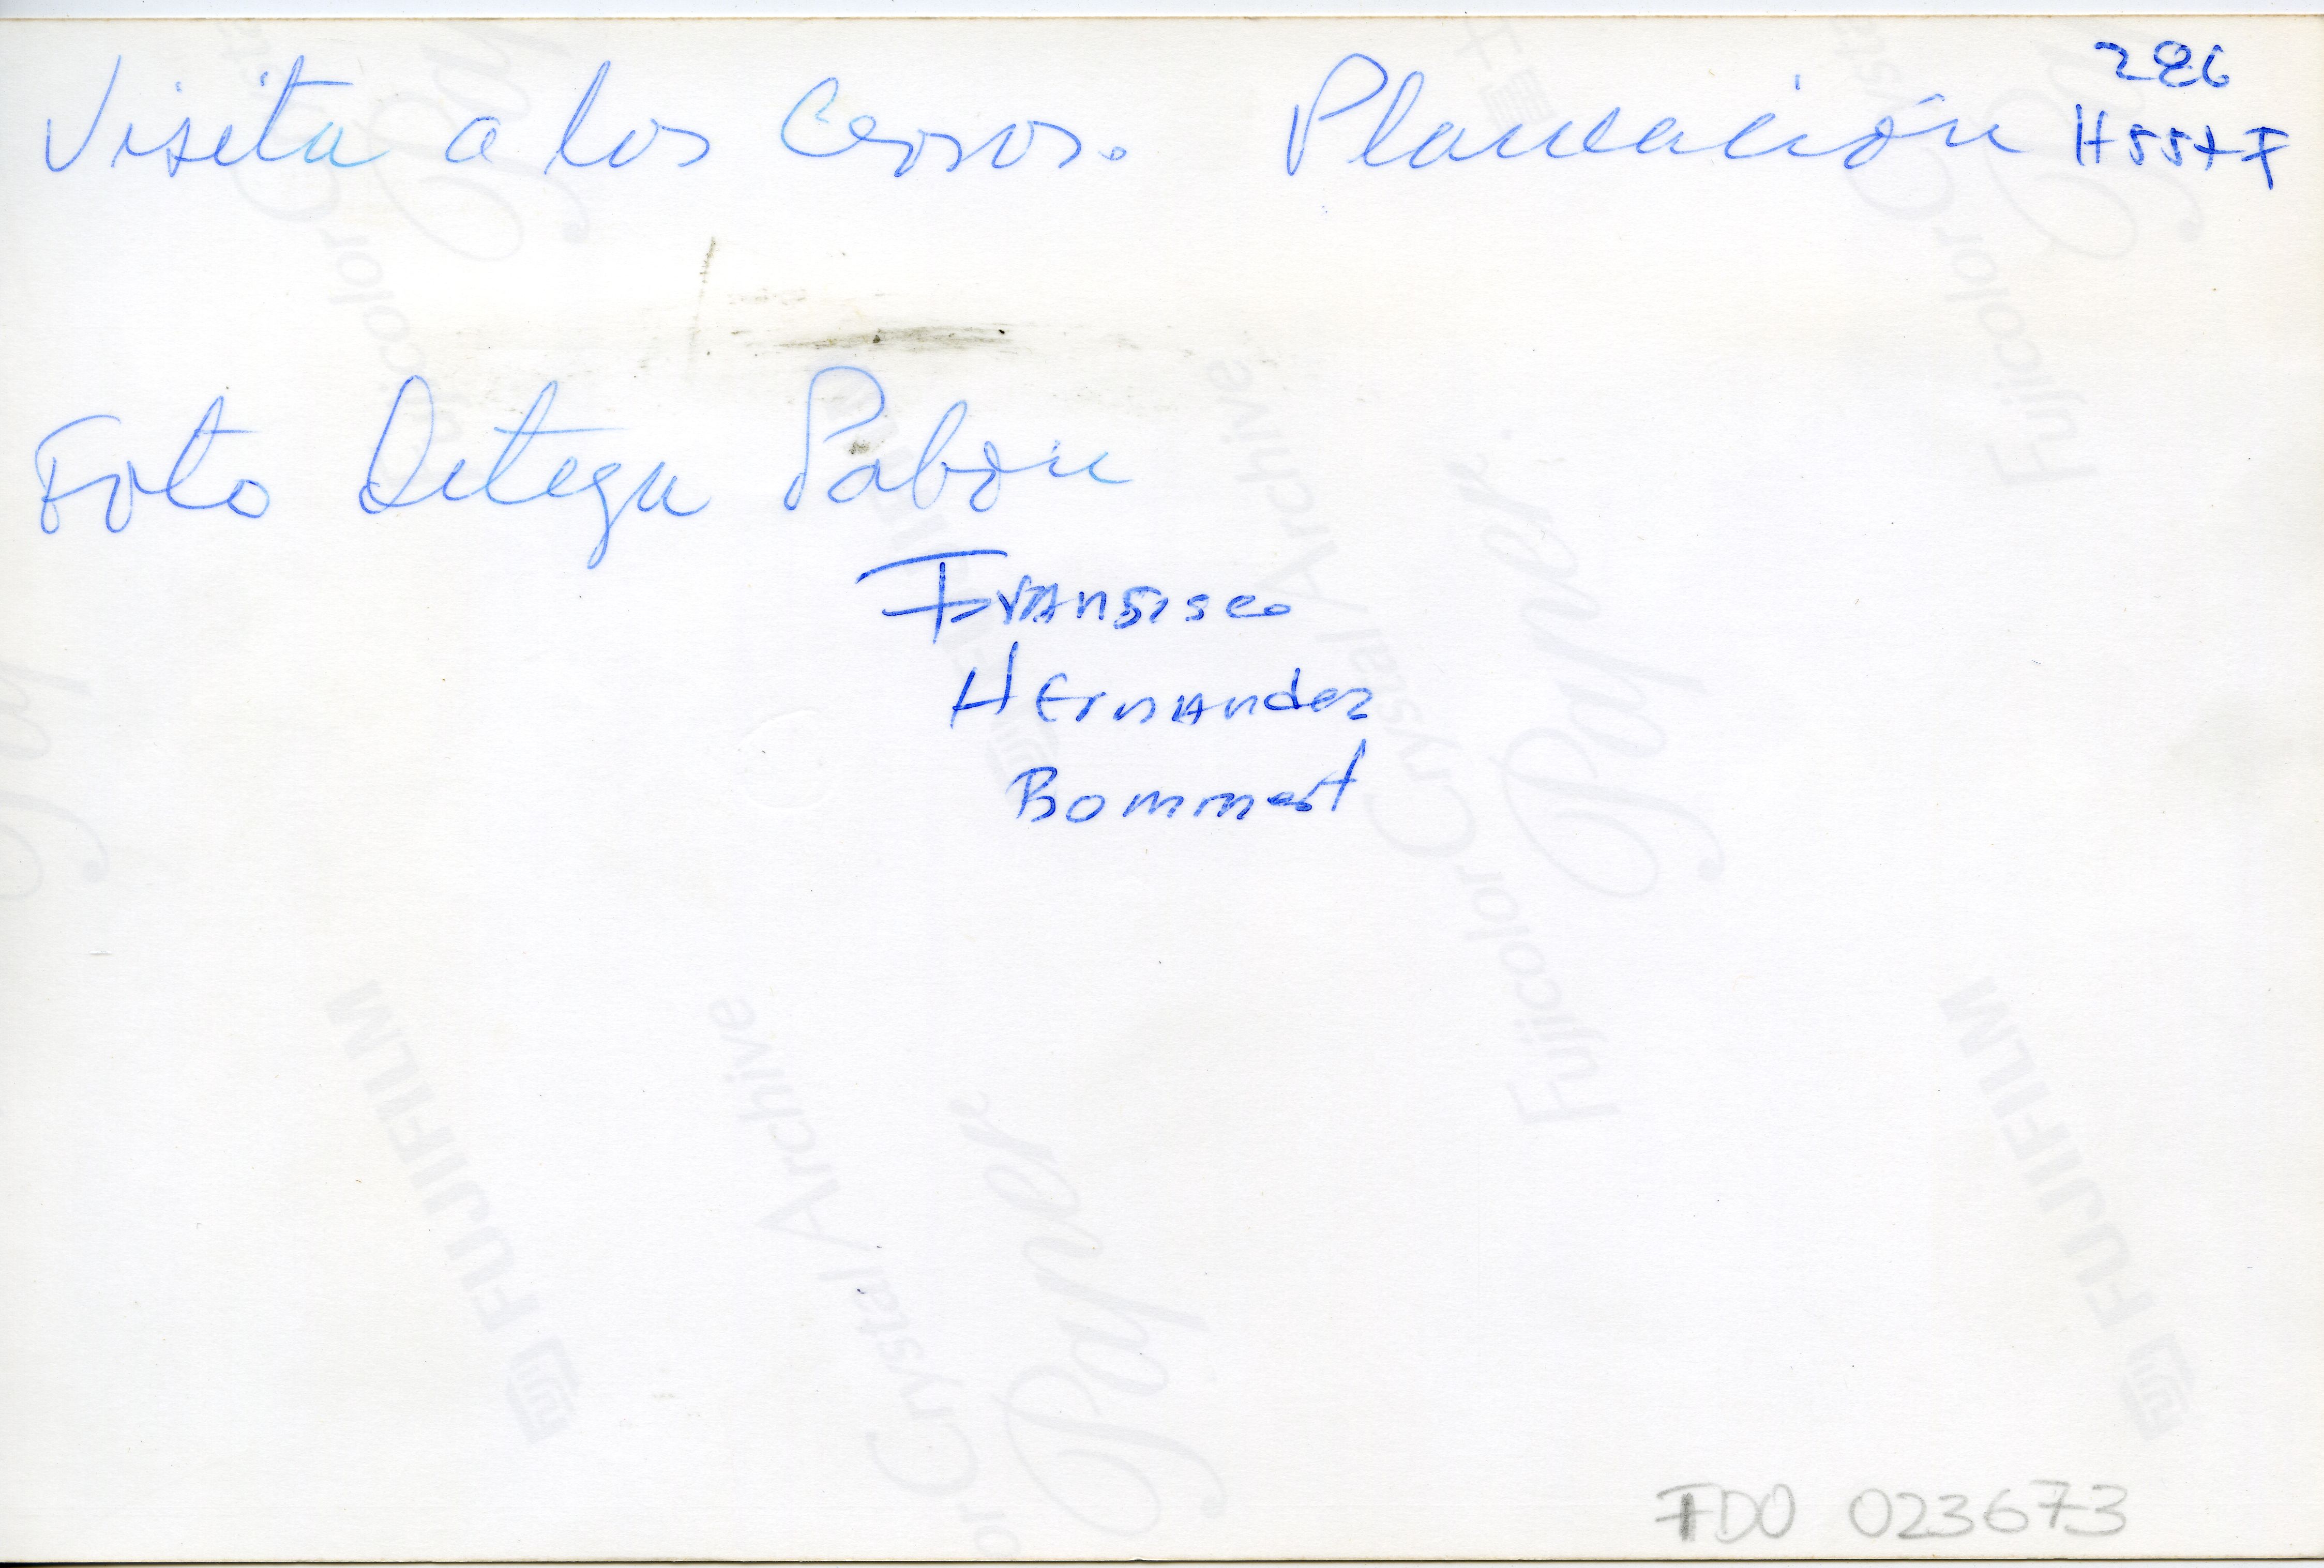 Visita a los Cerros. Planeación
286
H55+F
Foto Ortega Pabon
Fransisco
Hernandez
Bommest
FDO 023673
FUJIFILM
Fujicolor Crystal Archive
Paper